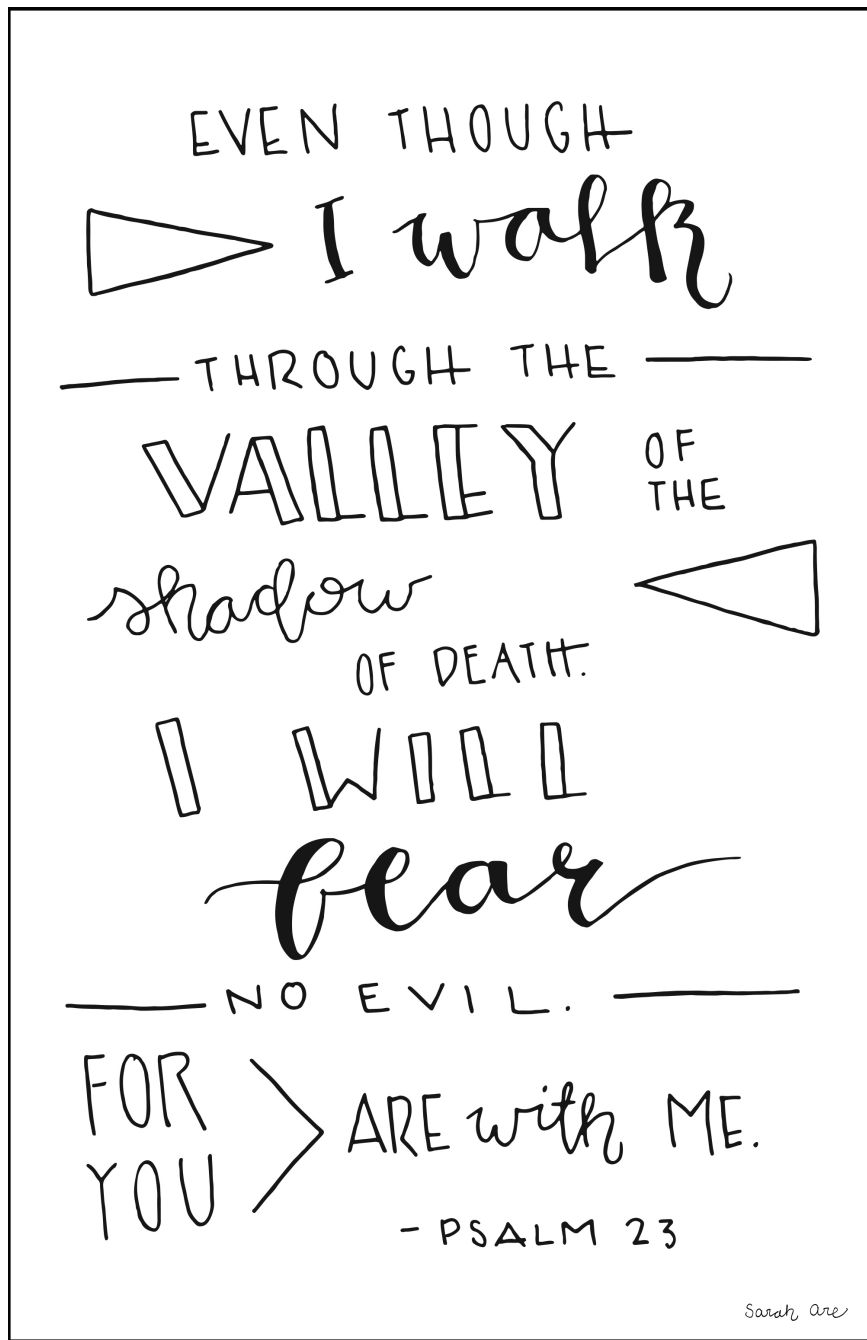 EVEN THOUGH
I walk
THROUGH THE
VALLEY OF THE
shadow
OF DEATH.
I WILL
fear
NO EVIL.
FOR YOU ARE with ME.
- PSALM 23
Sarah Are